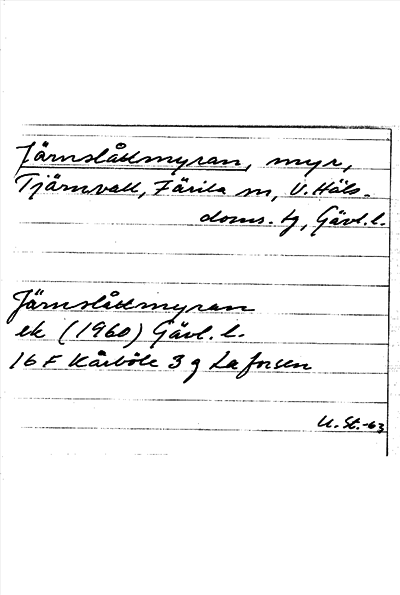 Järnslåttmyran, myr,
Tjärnvall, Färila sn, V. Häls.
doms. tg, Gävl. l.
Järnslåttmyran
ek (1960) Gävl. l.
16 F Kårböle 3 g Laforsen
U. St. -63